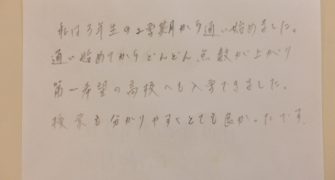 私は3年生の2学期から通い始めました。
通い始めてからどんどん点数が上がり
第一希望の高校へも入学できました。
授業も分かりやすくとても良かったです。